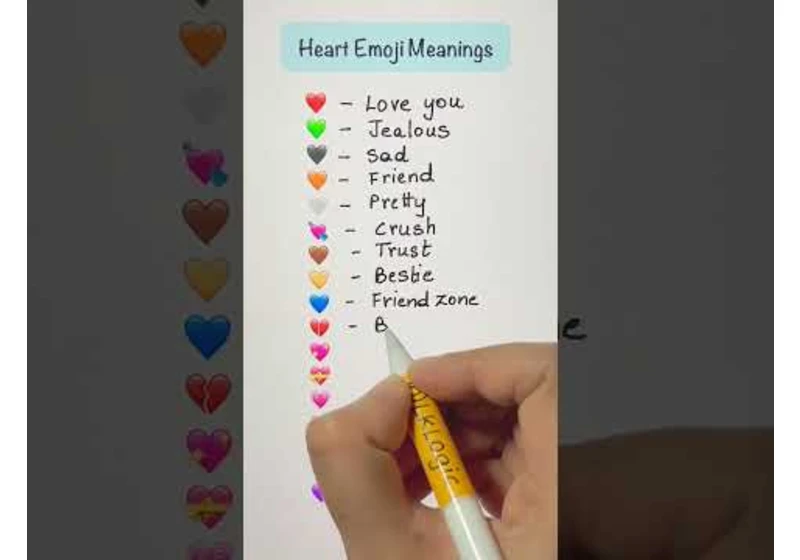 Heart Emoji Meanings
❤️ - Love you
💚 - Jealous
🖤 - Sad
🧡 - Friend
🤍 - Pretty
💘 - Crush
🤎 - Trust
💛 - Bestie
💙 - Friend zone
💔 - B
e